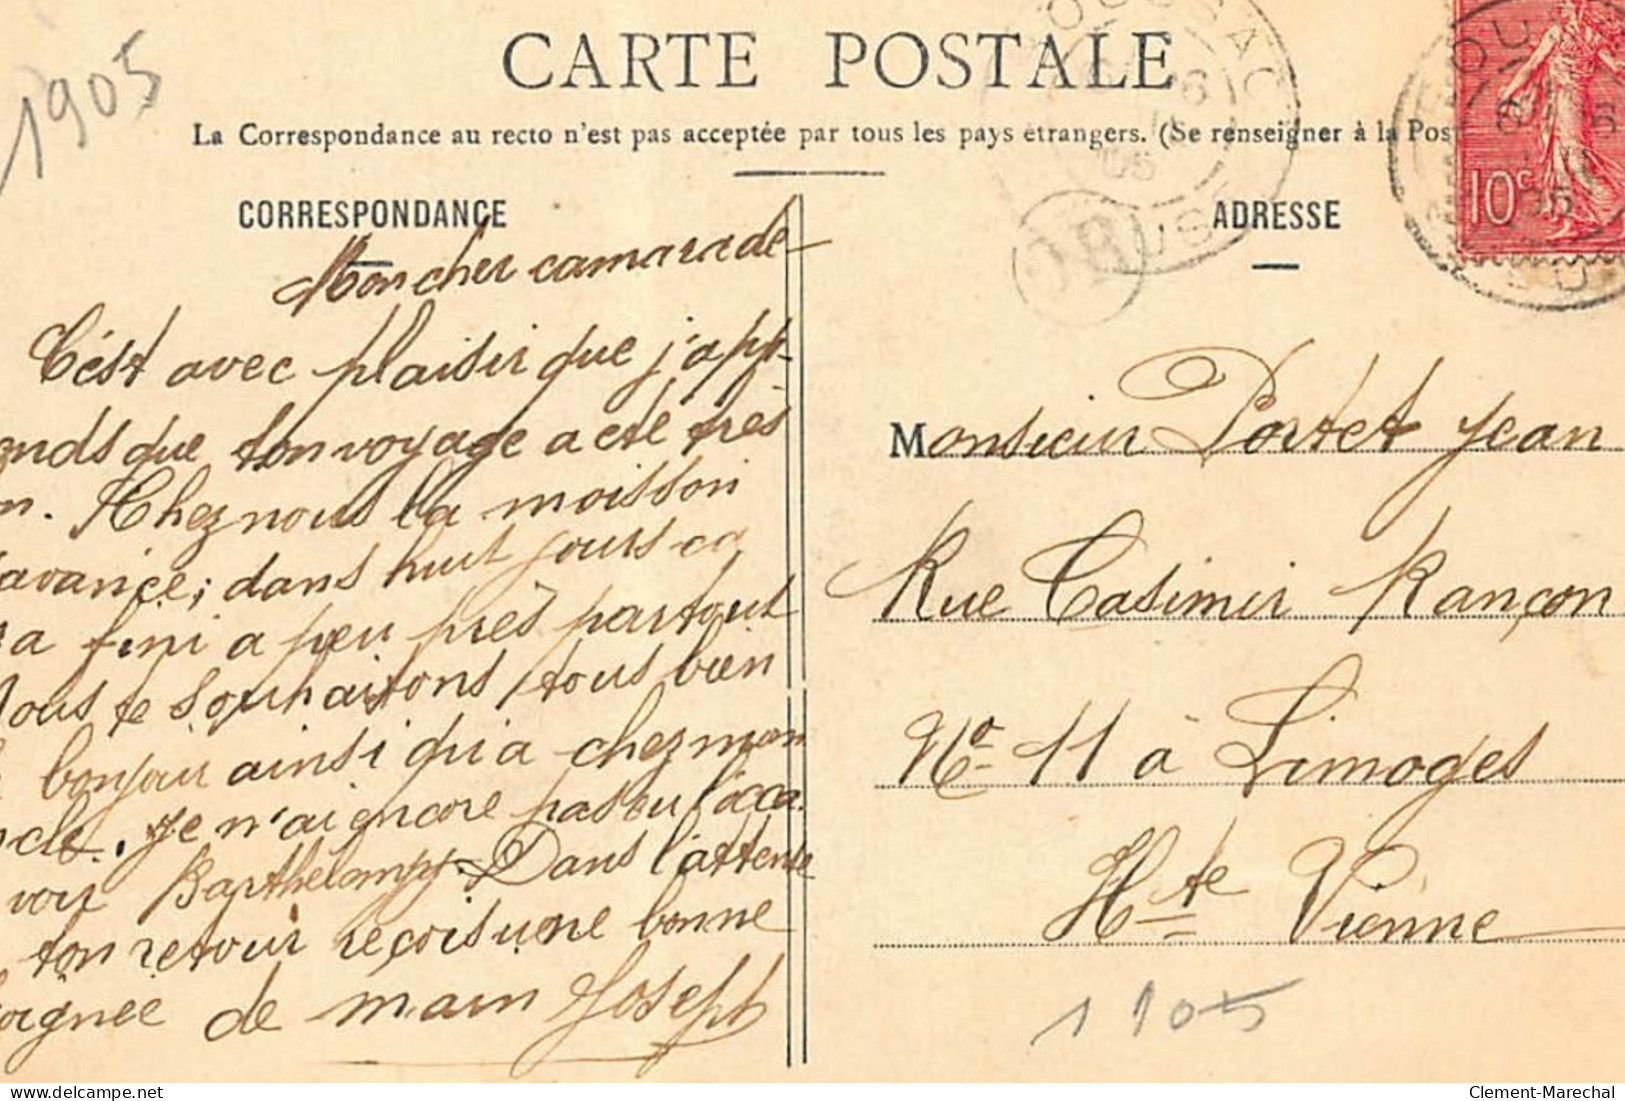 1905
CARTE POSTALE
La Correspondance au recto n'est pas acceptée par tous les pays étrangers. (Se renseigner à la Post
CORRESPONDANCE
Mon cher camarade
C'est avec plaisir que j'app-
ends que ton voyage a été très
n. Chez nous la moisson
avance; dans huit jours ça
ra fini a peu près partout
Nous te souhaitons, tous bien
bonjour ainsi qu'a chez mon
ncle. Je n'ai encore pas eu l'occa.
voir Barthelemy. Dans l'attente
ton retour reçois une bonne
oignée de main Joseph
ADRESSE
10c
Monsieur Portet Jean
Rue Casimir Rançon
No 11 à Limoges
Hte Vienne
1905
Clement-Marechal